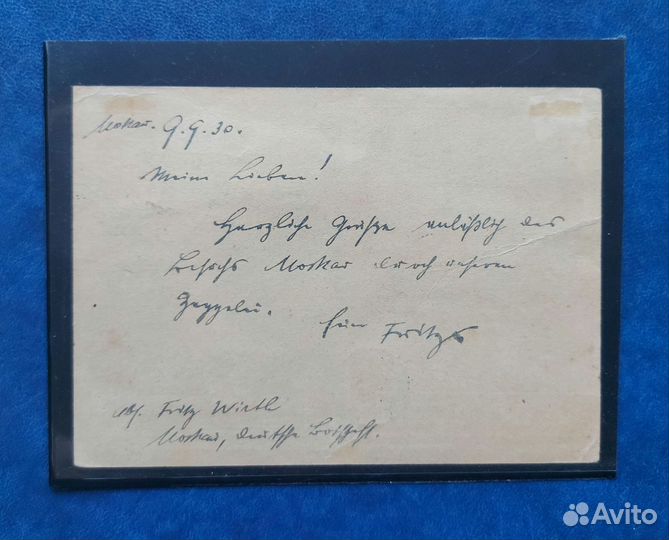 Moskau. 9.9.30.
Meine Lieben!
Herzliche Grüße anläßlich des
Besuchs Moskau durch unseren
Zeppelin.
Euer Fritz
Abs. Fritz Wirth
Moskau, Deutsche Botschaft.
Avito